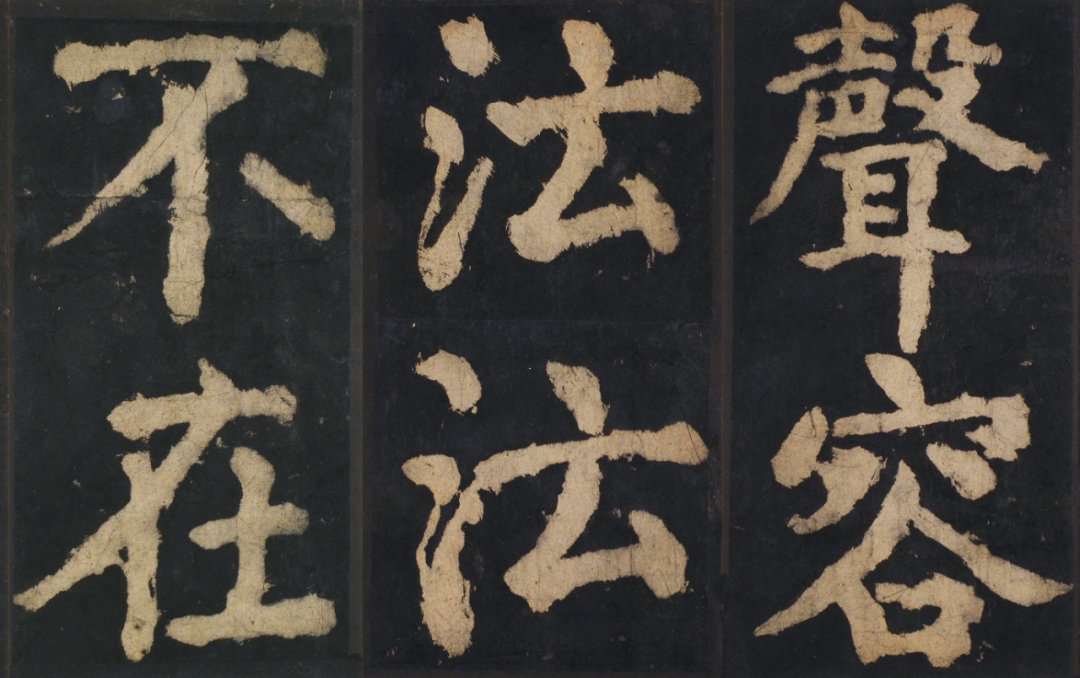 聲容
法法
不在